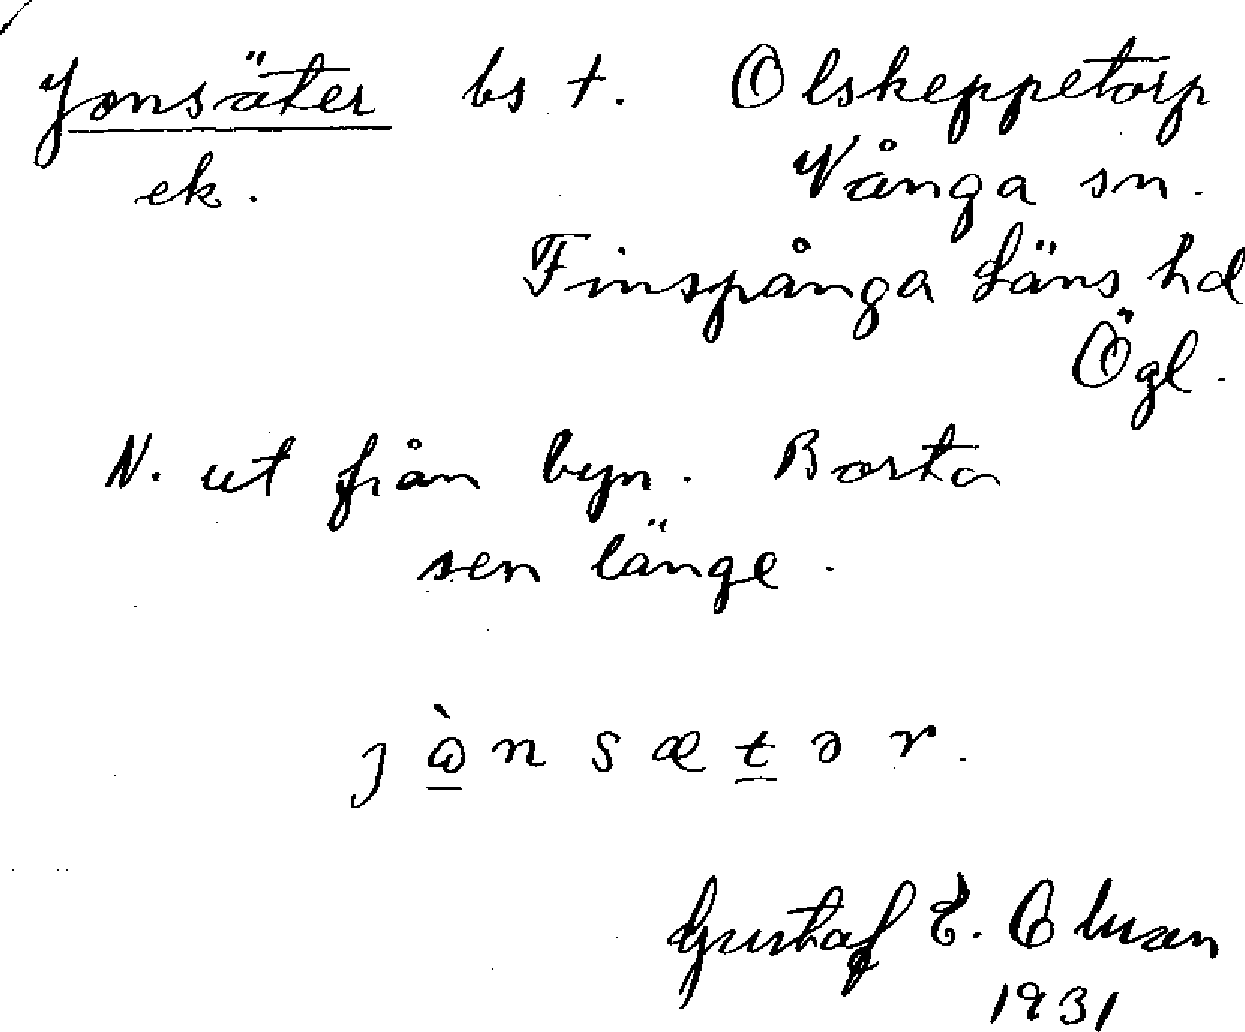 Jonsäter bs t. Olskeppetorp
ek. Vånga sn.
Finspånga läns hd
Ögl.
N. ut från byn. Borta
sen länge.
j ὼ n s æ t ə r.
Gustaf E.
1931